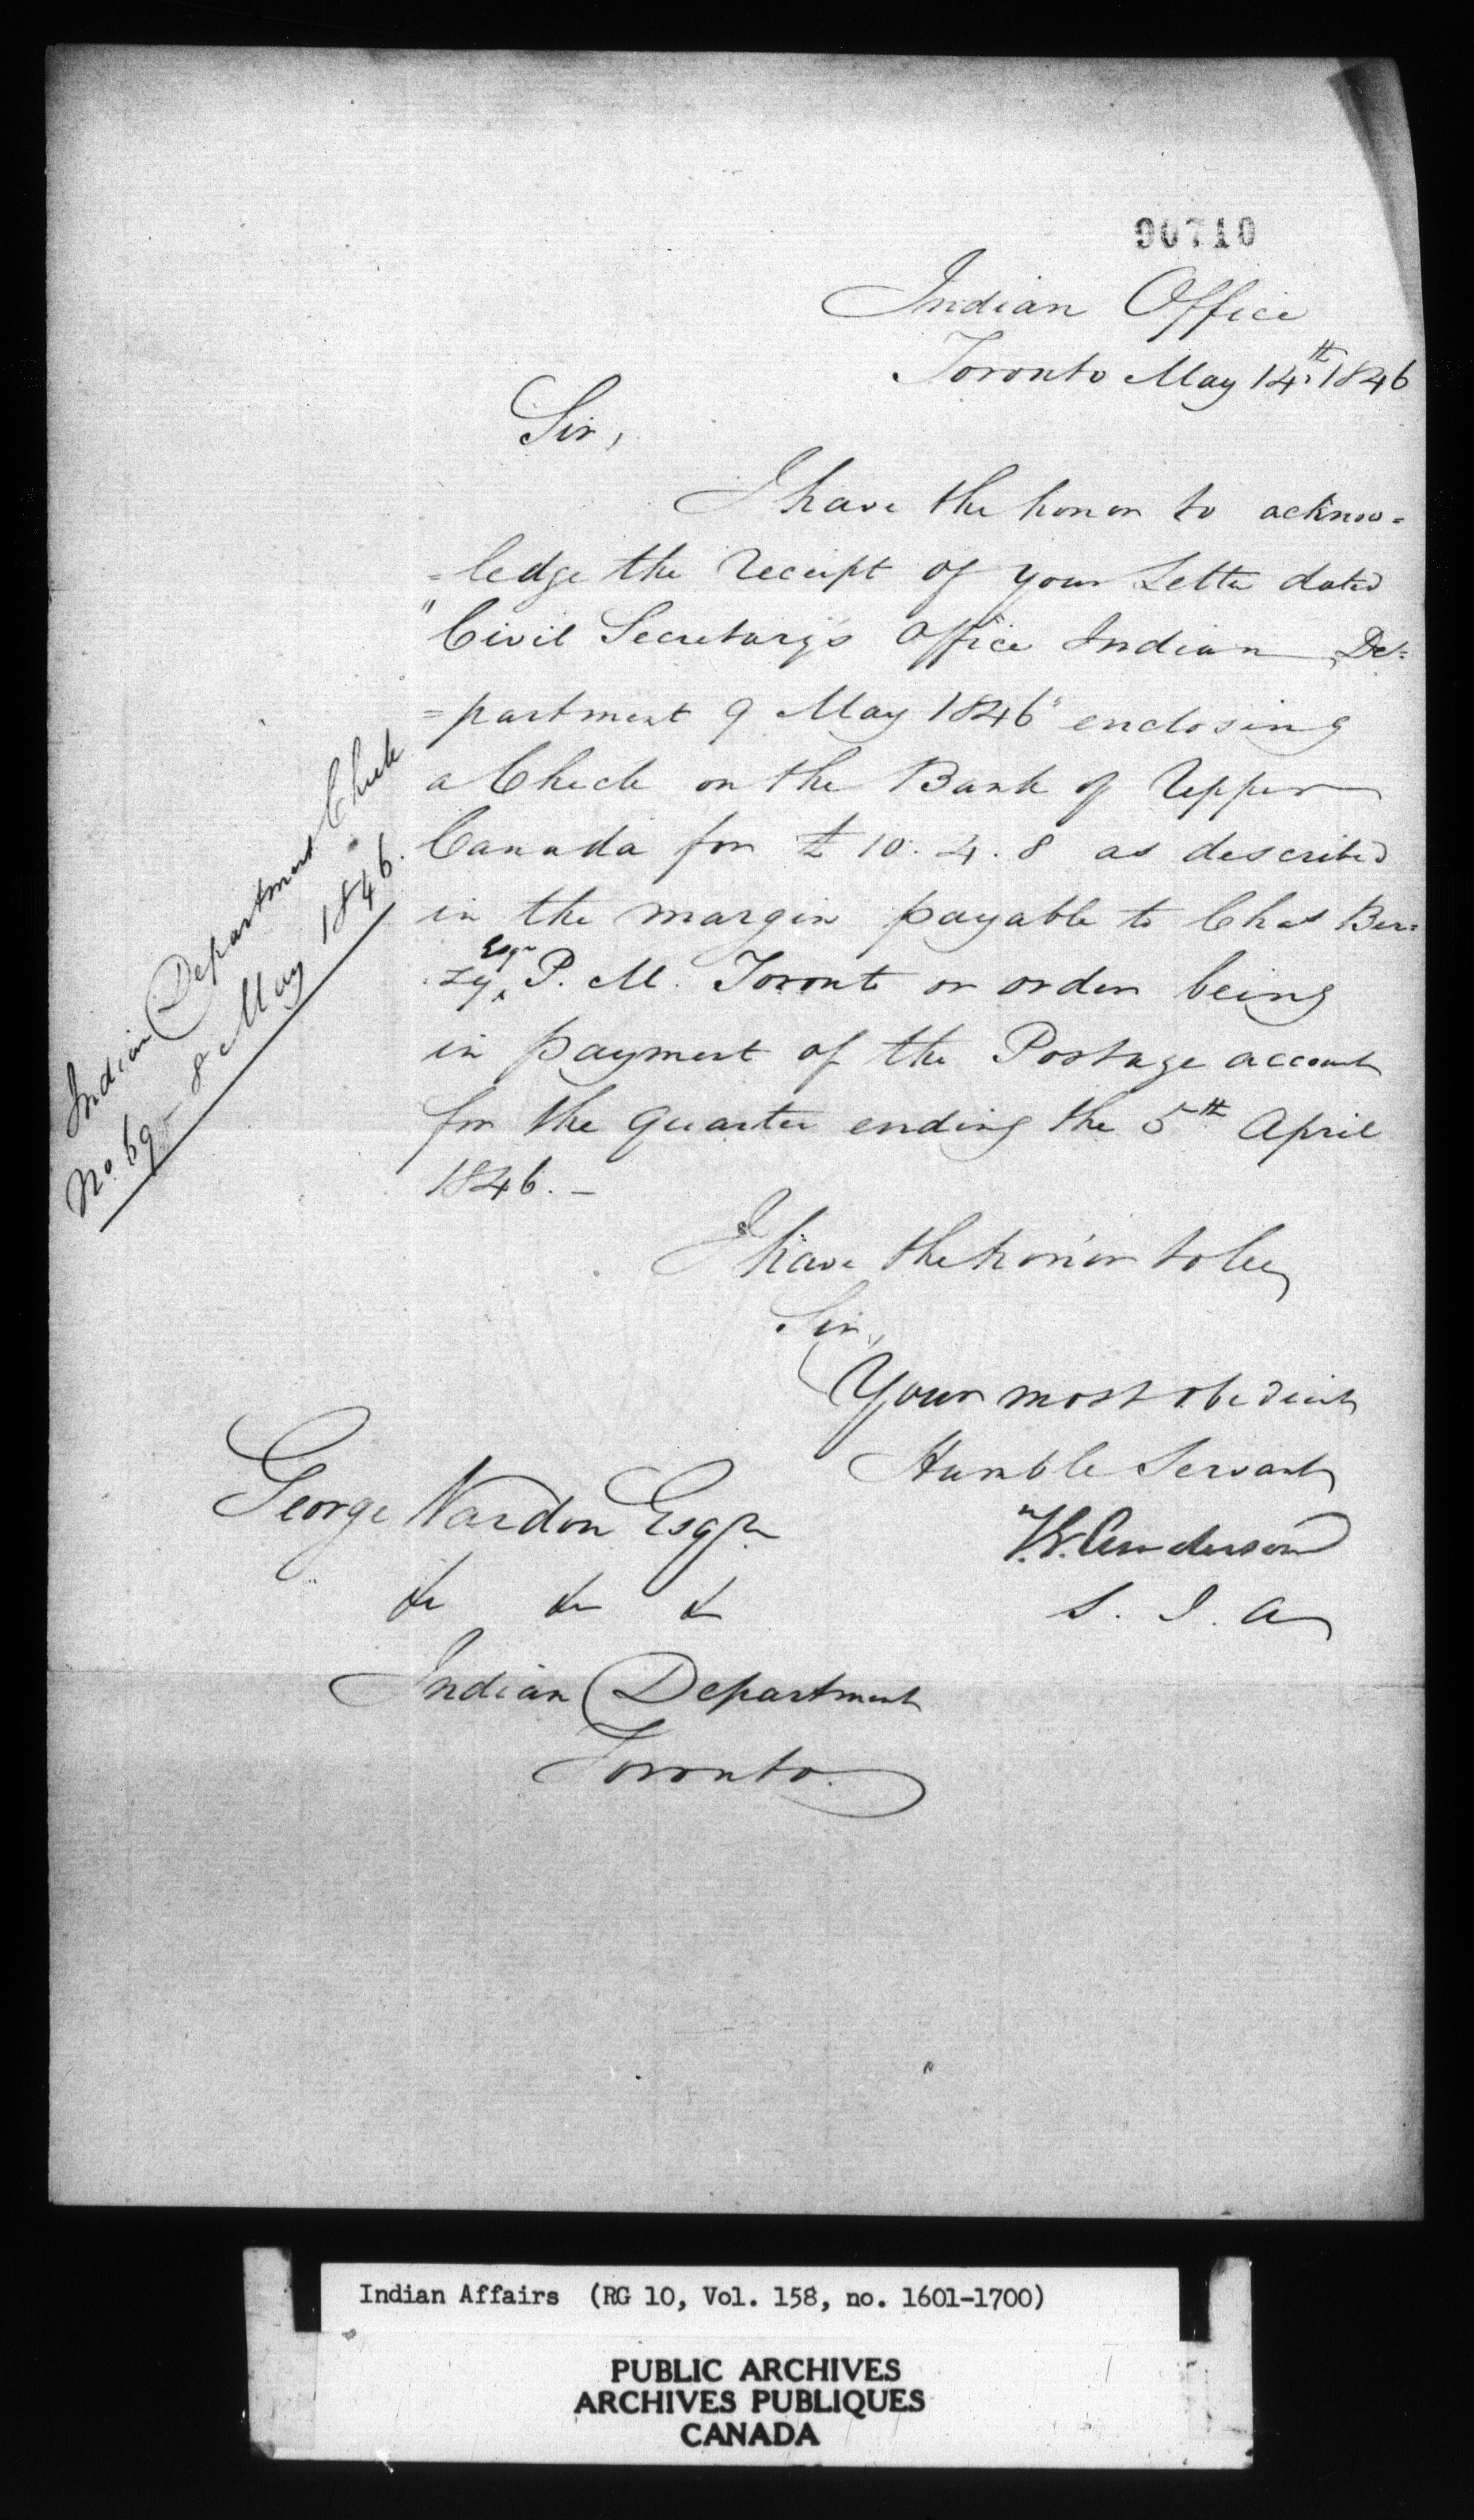 90710
Indian Office
Toronto May 14th 1846
Sir,
I have the honor to acknow=
=ledge the receipt of your Letter dated
"Civil Secretary's Office Indian De=
=partment 9 May 1846" enclosing
a Check on the Bank of Upper
Canada for £10.4.8 as described
in the margin payable to Chas Ber=
zy Esqr P. M. Toronto or order being
in payment of the Postage account
for the quarter ending the 5th April
1846. —
Indian Department Check
No. 69 - 8 May 1846.
I have the honor to be,
Sir,
Your most obedient
Humble Servant
T.G. Anderson
S. I. A
George Vardon Esqr
&c &c &c
Indian Department
Toronto.
Indian Affairs (RG 10, Vol. 158, no. 1601-1700)
PUBLIC ARCHIVES
ARCHIVES PUBLIQUES
CANADA